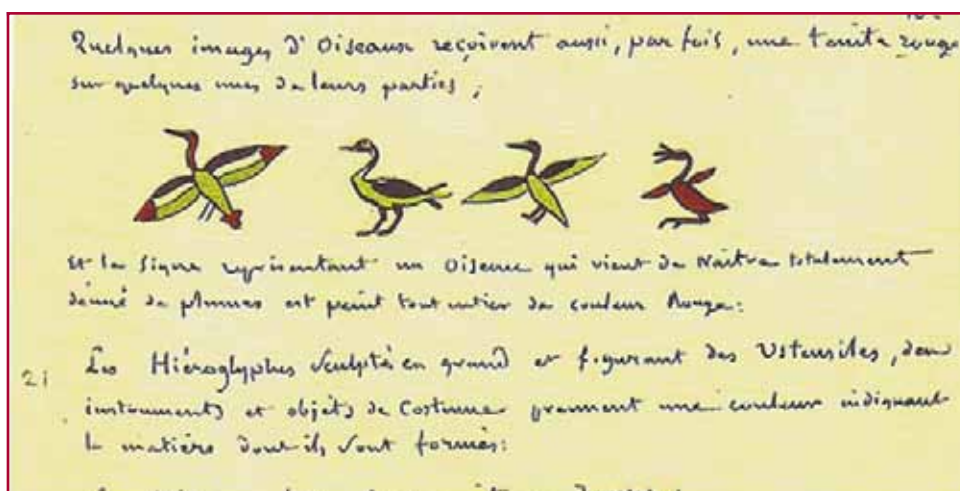 Quelques images d'Oiseaux reçoivent aussi, par fois, une teinte rouge
sur quelques unes de leurs parties,
Et le Signe représentant un Oiseau qui vient de Naitre totalement
dénué de plumes est peint tout entier de couleur Rouge:
21 Les Hiéroglyphes Sculptés en grand et figurant des Ustensiles, des
instruments et objets de Costume prennent une couleur indiquant
la matière dont ils sont formés: